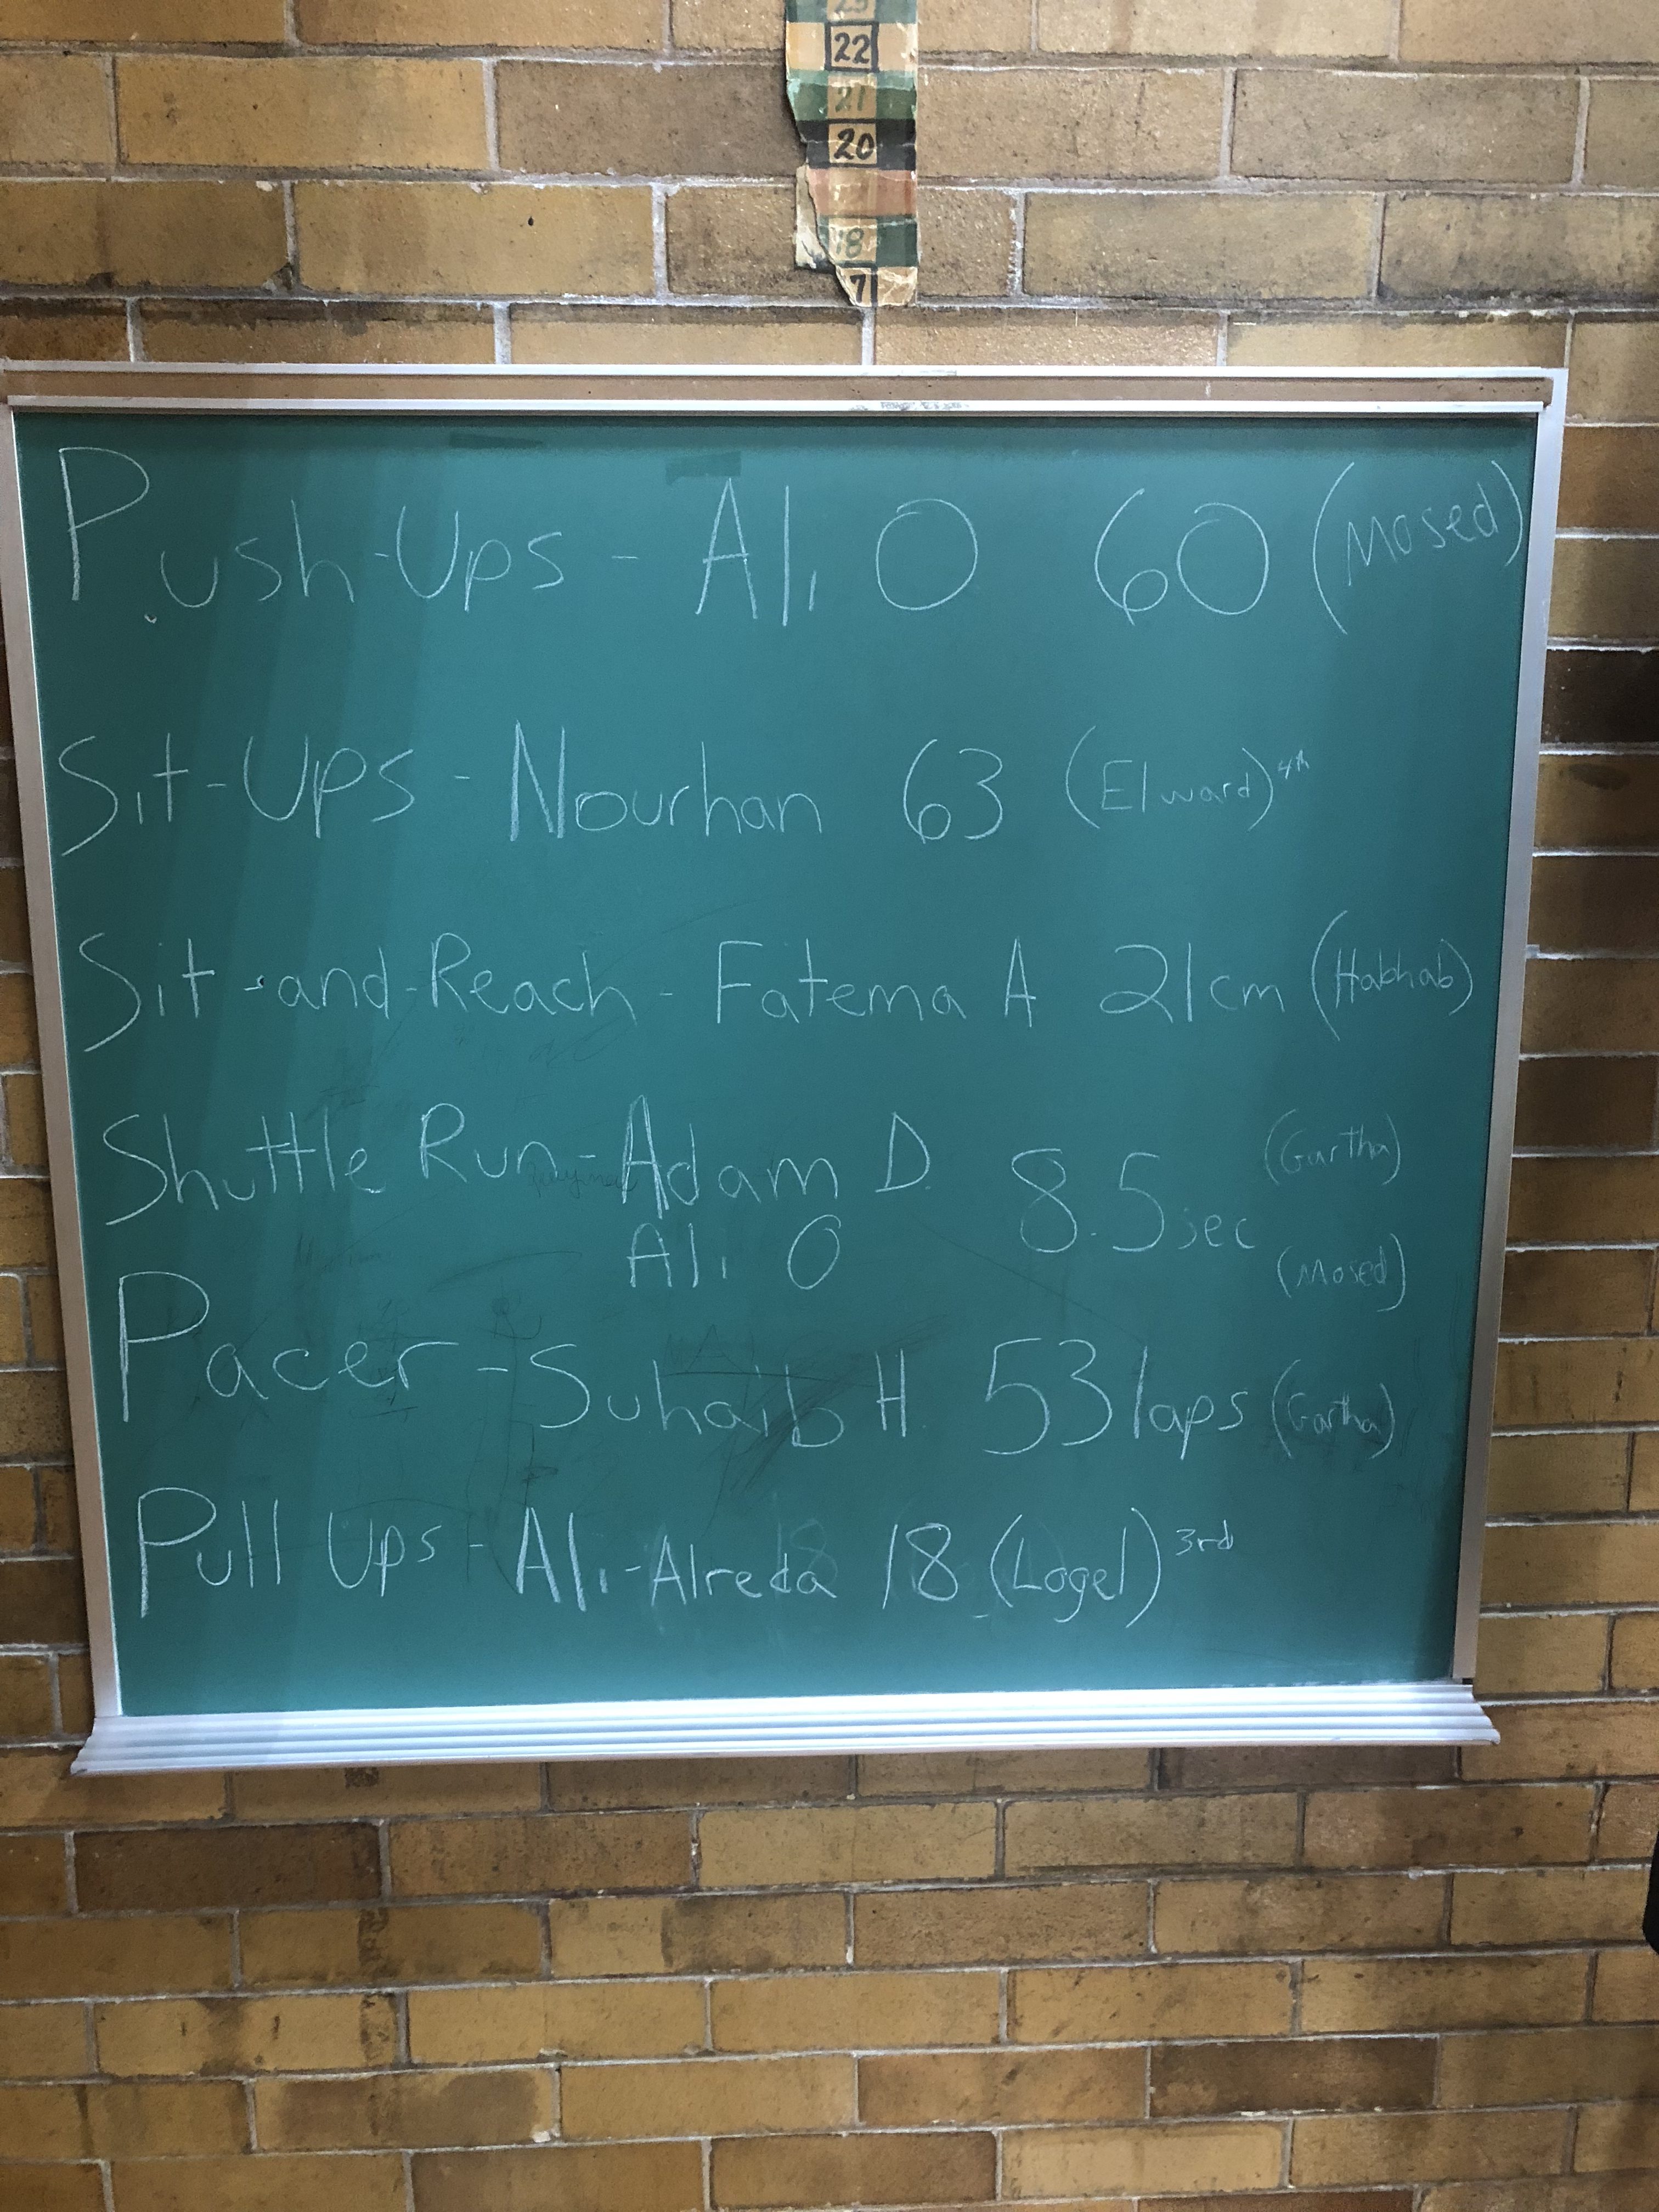 22
21
20
18
7
Push-Ups - Ali O 60 (Mosed)
Sit-Ups - Nourhan 63 (Elward) 4th
Sit-and-Reach - Fatema A 21cm (Habhab)
Shuttle Run - Adam D. 8.5 sec (Gartha)
Ali O (Mosed)
Pacer - Suhaib H. 53 laps (Gartha)
Pull Ups - Ali-Alreda 18 (Logel) 3rd